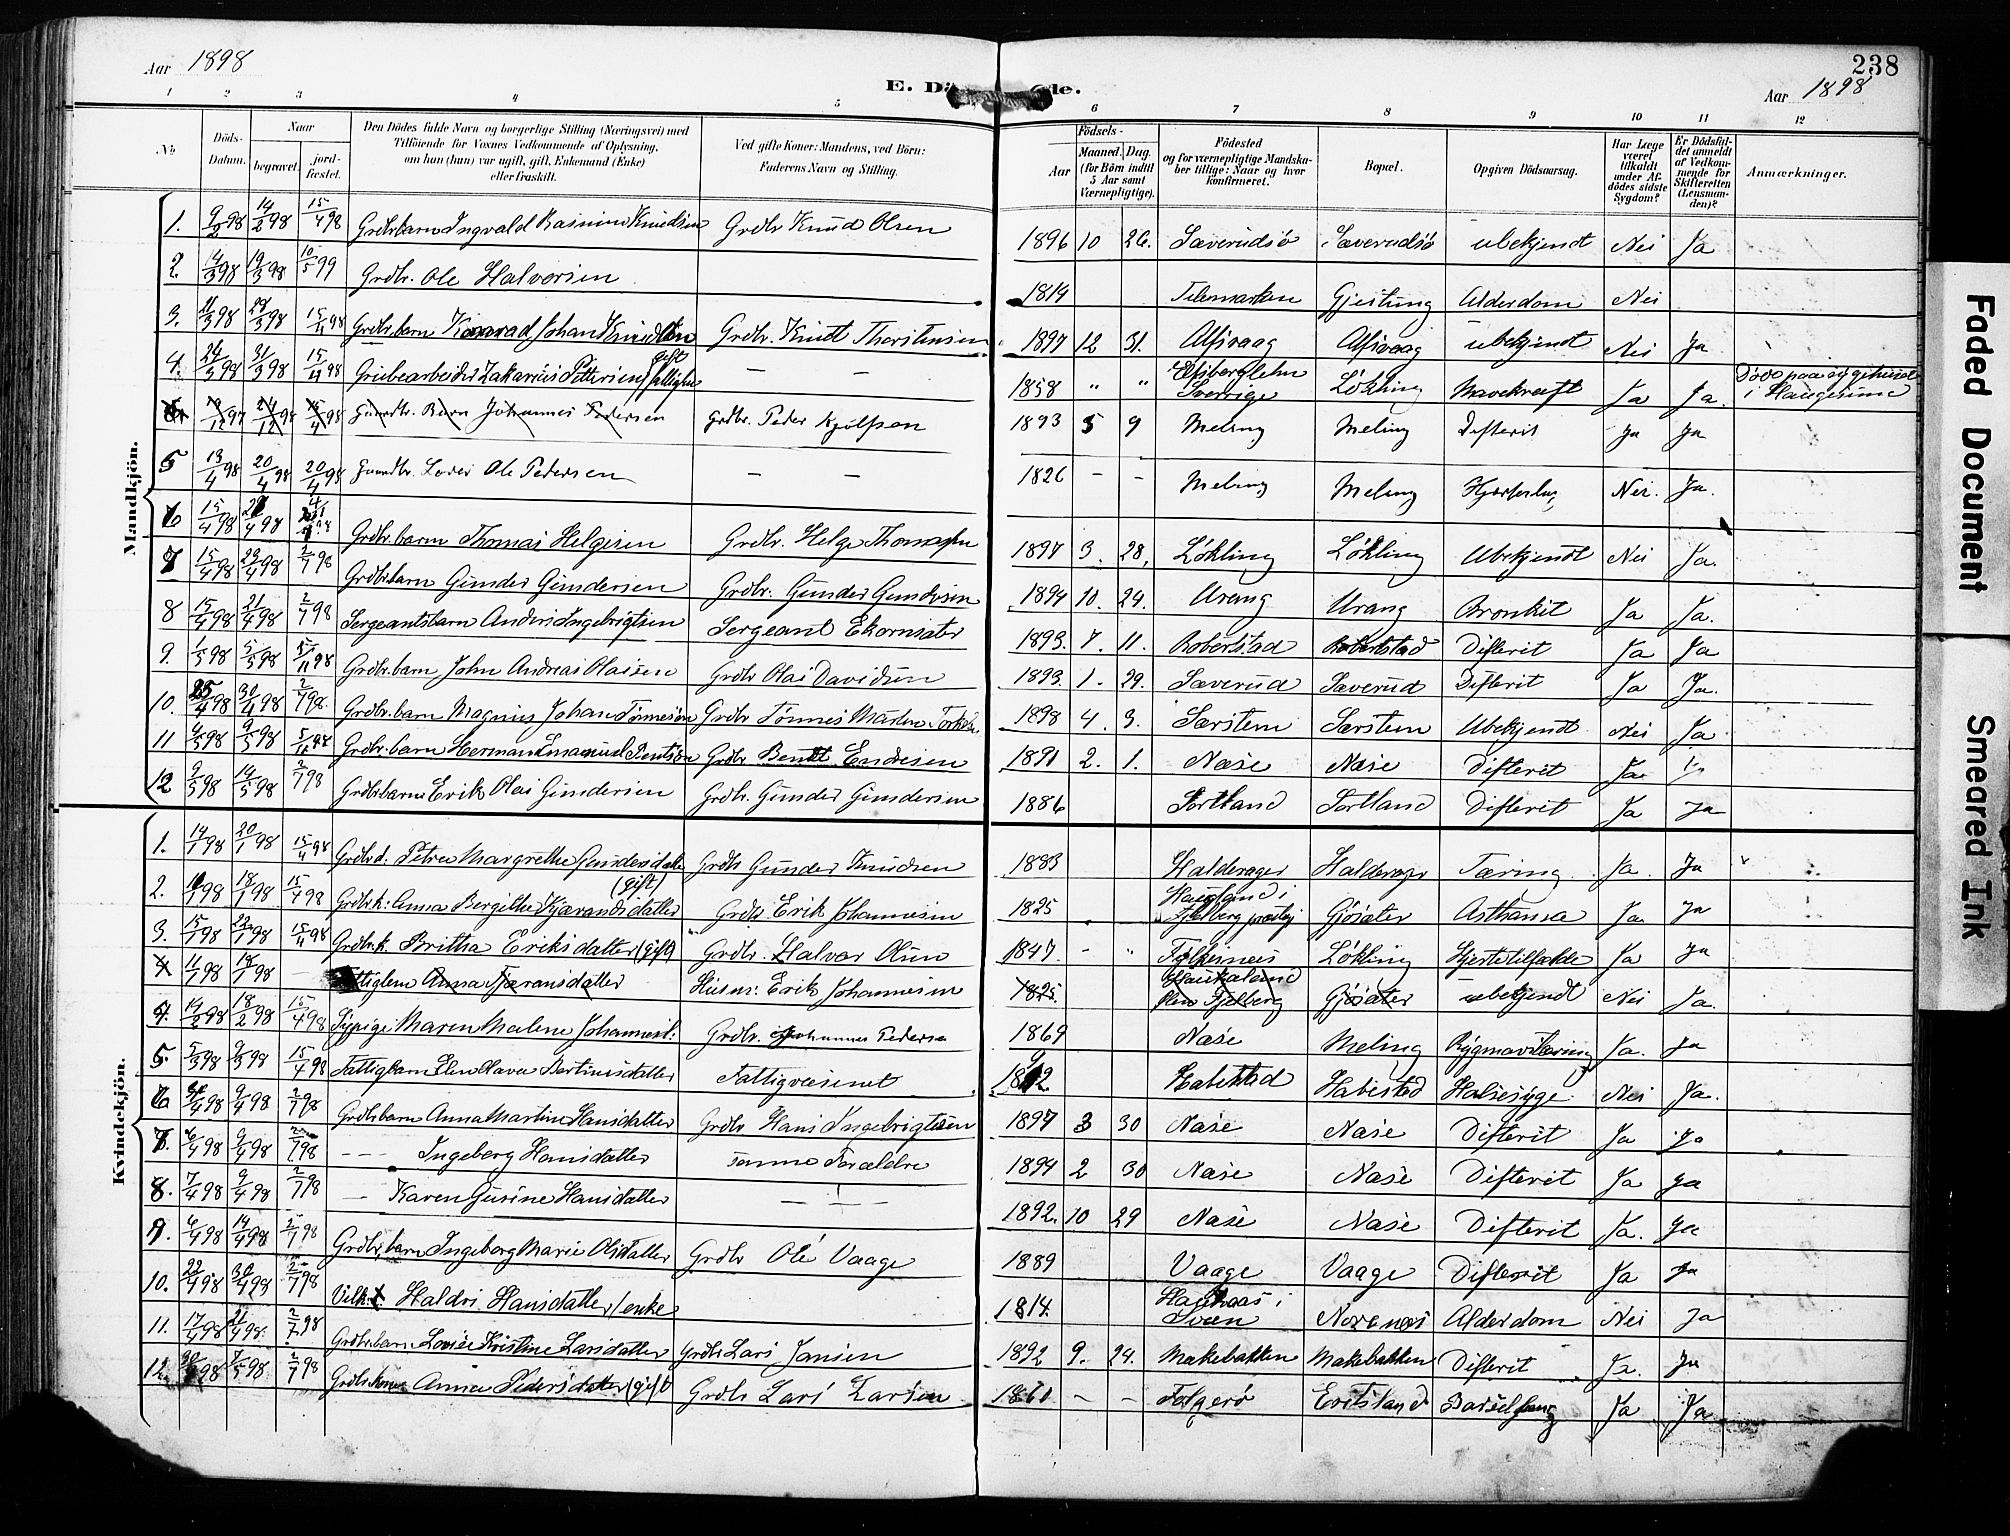 Aar 1898
E. Dö de.
238
Aar 1898
1 2 3 4 5 6 7 8 9 10 11 12
No
Döds-Datum.
Naar
begravet.
jord-fæstet.
Den Dödes fulde Navn og borgerlige Stilling (Næringsvei) med Tilföiende for Voxnes Vedkommende af Oplysning, om han (hun) var ugift, gift, Enkemand (Enke) eller fraskilt.
Ved gifte Koner: Mandens, ved Börn: Faderens Navn og Stilling.
Födsels-
Aar
Maaned. Dag. (for Börn indtil 5 Aar samt Værnepligtige).
Födested og for værnepligtige Mandskaber tillige: Naar og hvor konfirmeret.
Bopæl.
Opgiven Dödsaarsag.
Har Læge været tilkaldt under Afdödes sidste Sygdom?
Er Dödsfaldet anmeldt af Vedkommende for Skifteretten (Lensmanden)?
Anmærkninger.
Mandkjön.
1. 9/2 98 14/2 98 15/4 98 Grdbr.barn Ingvald Rasmus Knudsen Grdbr Knud Olsen 1896 10 26. Sæverudsø Sæverudsø ubekjendt Nei Ja
2. 14/3 98 19/3 98 10/5 99 Grdbr. Ole Halvorsen 1814 Telemarken Gjeitung Alderdom Nei
3. 21/3 98 28/3 98 15/4 98 Grdbr.barn Konrad Johan Knudsen Grdbr. Knut Thorstensen 1897 12 31. Alfsvaag Alfsvaag ubekjendt Nei Ja
4. 24/3 98 31/3 98 15/4 98 Grubearbeider Zakarias Pettersen gift fattiglem — — 1858 " " Sverrige Løkling Mavekræft Ja Ja. Døde paa sygehuset i Haugesund
/12 97 24/12 98 15/4 98 Gaardbr. Barn Johannes Pedersen Grdbr. Peder Kjølfsen 1893 5 9 Meling Meling Difterit Ja Ja
5 13/4 98 20/4 98 20/4 98 Gaardbr. Ole Pedersen — — 1826 - - Meling Meling Nei. Ja.
6 15/4 98 4 98 Grdbr.barn Thomas Helgesen Grdbr. Helge Thomassen 1897 3. 28. Løkling Løkling Ubekjendt Nei Ja.
7 15/4 98 23/4 98 2/7 98 Grdbr.barn Gunder Gundersen Grdbr. Gunder Gundersen 1894 10. 24. Urang Urang Bronkit Ja Ja.
8 15/4 98 21/4 98 2/7 98 Sergeantsbarn Anders Ingebrigtsen Sergeant Ekornsæter 1893. 7. 11. Robertstad Robertstad Difterit Ja Ja
9. 1/5 98 5/5 98 5/11 98 Grdbr.barn John Andreas Olaisen Grdbr Olai Davidsen 1893. 1. 29. Sæverud Sæverud Difterit Ja Ja.
10. 25/4 98 30/4 98 2/7 98. Grdbr.barn Magnus Johan Tønnesen Grdbr Tønnes Martin 1898 4. 3. Særstem Særstem Ubekjendt Nei Ja
11 4/5 98 9/5 98 5/11 98 Grdbr.barn Herman Emanuel Bentsen Grdbr Bendt Endresen 1891 2. 1. Næse Næse Difterit Ja. Ja
12 9/5 98 14/5 98 2/7 98 Grdbr.barn Erik Olai Gundersen Grdbr. Gunder Gundersen 1886 Sortland Sortland Difterit Ja Ja
Kvindekjön.
1. 14/1 98 20/1 98 15/4 98 Grdbr.d. Petra Margrethe Gundersdatter Grdbr Gunder Knudsen 1883 Halderager Halderager Tæring Ja. Ja
2. 11/1 98 18/1 98 15/4 98 Grdbr.k. Anna Bergithe Kjærandsdatter (gift) Grdbr. Erik Johannesen 1825 Haugland i Fjelberg præstgj Gjøsæter Asthama Ja Ja
3. 15/1 98 22/1 98 15/4 98 Grdbr.k. Britha Eriksdatter (gift) Grdbr. Halvor Olsen 1847. - " Føleisnes Løkling Hjertetilfælde Ja Ja
4 11/1 98 18/1 98 — Fattiglem Anna Fjæransdatter Husm: Erik Johannesen 1825 Fjelberg Gjøsæter ubekjendt Nei Ja.
4. 14/2 98 18/2 98 15/4 98 Sypige Maren Malene Johannesd. Grdbr. Johannes Pedersen 1869 Næse Meling Rygmavstæring Ja. Ja
5. 5/3 98 9/3 98 15/4 98 Fattigbarn Elen Olava Bertinusdatter Fattigvæsenet Habestad Habestad Halsesyge Nei Ja.
6 4 98 9/4 98 2/7 98 Grdbr.barn Anna Martine Hansdatter Grdbr Hans Ingebrigtsen 1897 3 30 Næse Næse Difterit Ja Ja
7. 6/4 98 9/4 98 2/7 98 --- Ingeborg Hansdatter samme Forældre 1894 2 30 Næse Næse Difterit Ja Ja
8. 7/4 98 9/4 98 2/7 98 — Karen Gurine Hansdatter — — 1892. 10 29 Næse Næse Difterit Ja. Ja
9. 6/4 98 14/4 98 2/7 98 Grdbr.barn Ingeborg Marie Olsdatter Grdbr Ole Vaage 1889 Vaage Vaage Difterit Ja Ja
10. 22/4 98 30/4 98 2/7 98 Vilk. Haldri Hansdatter /enke 1814. i Sveen Norenæs Alderdom Nei Ja
11. 17/4 98 21/4 98. 2/7 98 Grdbr.barn Lovise Kristine Larsdatter Grdbr Lars Jansen 1892 9. 24. Mækebakken Mækebakken Difterit Ja. Ja
12. 30/4 98 7/5 98 2/7 98 Grdbr.kone Anna Pedersdatter (gift) Grdbr Lars Larsen 1861 — — Folgerø Eritsland Barselfeng Ja Ja
Faded Document
Smeared Ink